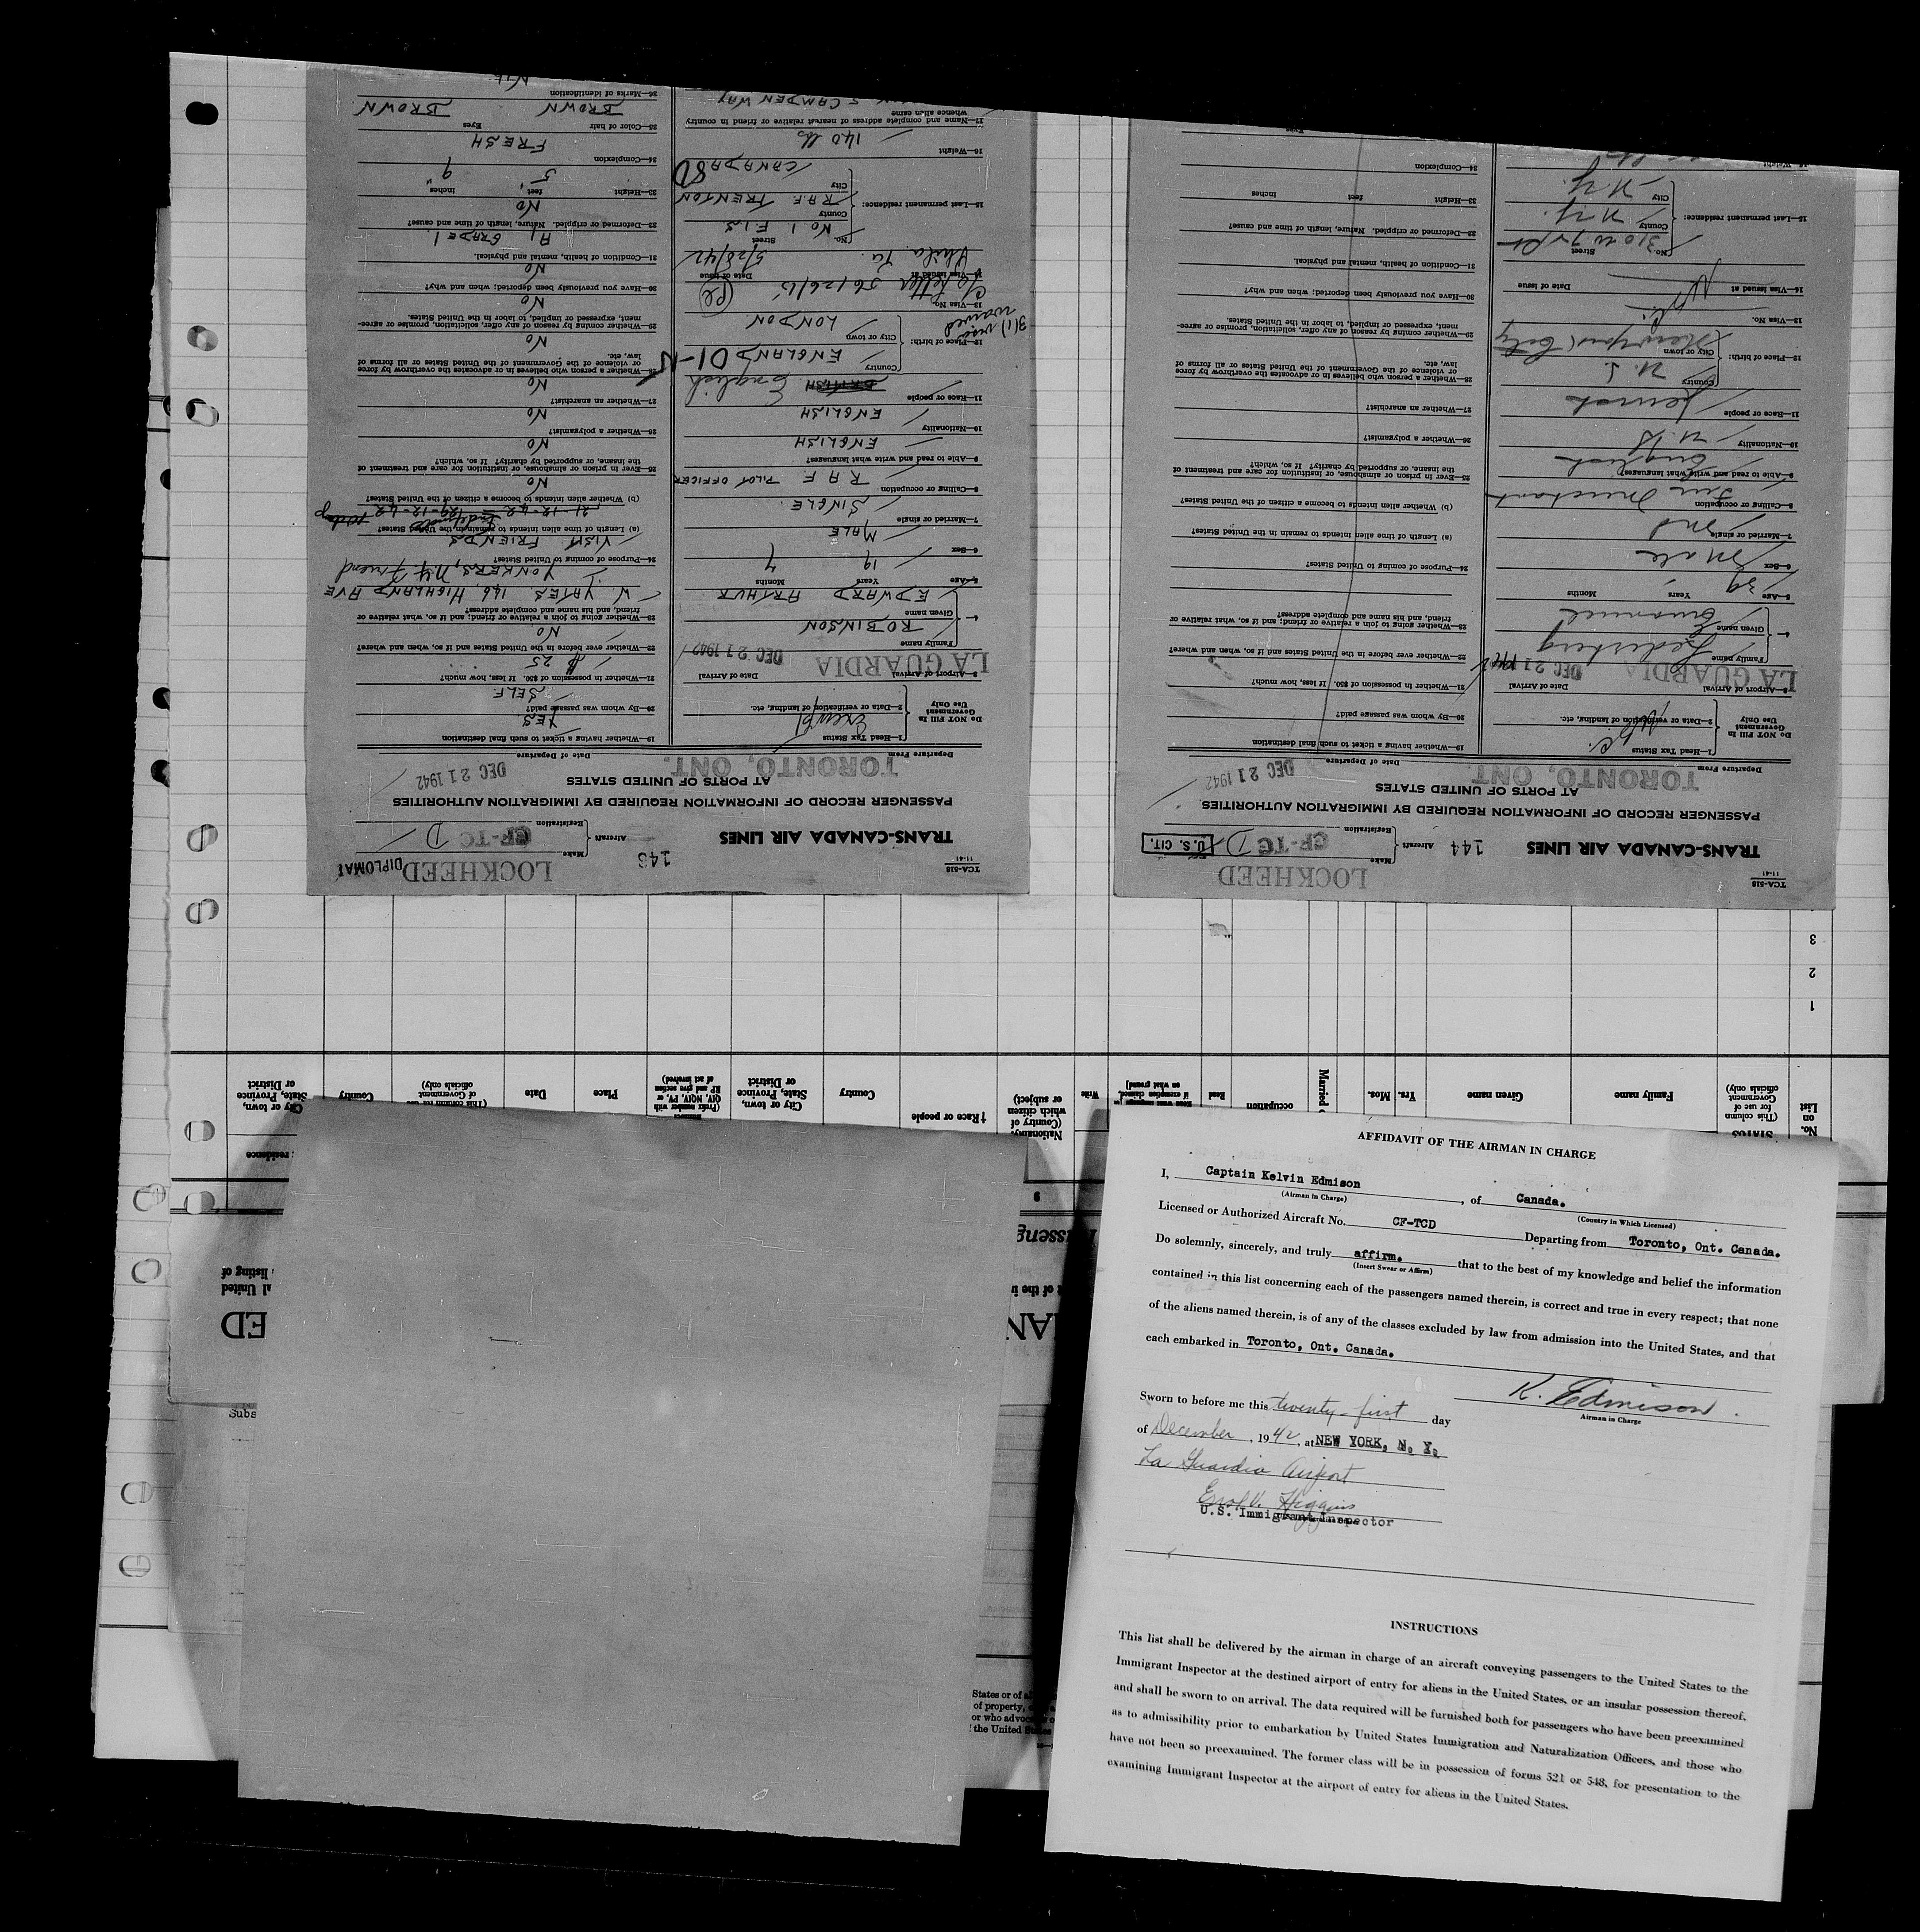 TCA-518
11-41
LOCKHEED
DIPLOMAT
TRANS-CANADA AIR LINES
146
Aircraft { Make
Registration CF-TC D
PASSENGER RECORD OF INFORMATION REQUIRED BY IMMIGRATION AUTHORITIES
AT PORTS OF UNITED STATES
TORONTO, ONT.
DEC 21 1942
Departure From
Date of Departure
Do NOT Fill In
Government
Use Only
1—Head Tax Status
Exempt
2—Data or verification of landing, etc.
3—Airport of Arrival
Date of Arrival
LA GUARDIA
DEC 21 1942
4—
Family name
ROBINSON
Given name
EDWARD ARTHUR
5—Age
Years
Months
19
7
6—Sex
MALE
7—Married or single
SINGLE
8—Calling or occupation
R A F PILOT OFFICER
9—Able to read and write what languages?
ENGLISH
10—Nationality
ENGLISH
11—Race or people
English
12—Place of birth:
Country
ENGLAND
City or town
LONDON
3(1) visa
waived
13—Visa No.
14—Visa issued at
Date of issue
Phila. Pa.
5/28/42
15—Last permanent residence:
No.
Street
No 1. F.I.S
County
R.A.F. TRENTON
City
CANADA
16—Weight
140 lbs
17—Name and complete address of nearest relative or friend in country
whence alien came
5 CAMDEN WAY
19—Whether having a ticket to such final destination
YES
20—By whom was passage paid?
SELF
21—Whether in possession of $50. If less, how much?
$ 25
22—Whether ever before in the United States and if so, when and where?
No
23—Whether going to join a relative or friend; and if so, what relative or
friend, and his name and complete address?
W. YATES, 146, HIGHLAND AVE
YONKERS, N.Y. Friend
24—Purpose of coming to United States?
VISIT FRIENDS
(a) Length of time alien intends to remain in the United States?
21-12-42 29-12-42
(b) Whether alien intends to become a citizen of the United States?
No
25—Ever in prison or almshouse, or institution for care and treatment of
the insane, or supported by charity? If so, which?
No
26—Whether a polygamist?
No
27—Whether an anarchist?
No
28—Whether a person who believes in or advocates the overthrow by force
or violence of the Government of the United States or all forms of
law, etc.
No
29—Whether coming by reason of any offer, solicitation, promise or agree-
ment, expressed or implied, to labor in the United States.
No
30—Have you previously been deported; when and why?
No
31—Condition of health, mental and physical.
A1 GRADE 1.
32—Deformed or crippled. Nature, length of time and cause?
No
33—Height
feet
inches
5
9
34—Complexion
FRESH
35—Color of hair
Eyes
BROWN
BROWN
36—Marks of identification
TCA-518
11-41
LOCKHEED
U. S. CIT.
TRANS-CANADA AIR LINES
144
Aircraft { Make
Registration CF-TC D
PASSENGER RECORD OF INFORMATION REQUIRED BY IMMIGRATION AUTHORITIES
AT PORTS OF UNITED STATES
TORONTO, ONT.
DEC 21 1942
Departure From
Date of Departure
Do NOT Fill In
Government
Use Only
1—Head Tax Status
2—Data or verification of landing, etc.
3—Airport of Arrival
Date of Arrival
LA GUARDIA
DEC 21 1942
4—
Family name
Given name
Emanuel
5—Age
Years
Months
39
6—Sex
Male
7—Married or single
Md
8—Calling or occupation
Fur Merchant
9—Able to read and write what languages?
English
10—Nationality
U.S.
11—Race or people
Jewish
12—Place of birth:
Country
U.S.
City or town
New York City
13—Visa No.
14—Visa issued at
Date of issue
15—Last permanent residence:
No.
Street
County
N.Y.
City
N.Y.
16—Weight
19—Whether having a ticket to such final destination
20—By whom was passage paid?
21—Whether in possession of $50. If less, how much?
22—Whether ever before in the United States and if so, when and where?
23—Whether going to join a relative or friend; and if so, what relative or
friend, and his name and complete address?
24—Purpose of coming to United States?
(a) Length of time alien intends to remain in the United States?
(b) Whether alien intends to become a citizen of the United States?
25—Ever in prison or almshouse, or institution for care and treatment of
the insane, or supported by charity? If so, which?
26—Whether a polygamist?
27—Whether an anarchist?
28—Whether a person who believes in or advocates the overthrow by force
or violence of the Government of the United States or all forms of
law, etc.
29—Whether coming by reason of any offer, solicitation, promise or agree-
ment, expressed or implied, to labor in the United States.
30—Have you previously been deported; when and why?
31—Condition of health, mental and physical.
32—Deformed or crippled. Nature, length of time and cause?
33—Height
feet
inches
34—Complexion
No.
on
List
STATUS
(This column
for use of
Government
officials only)
Family name
Given name
Yrs.
Mos.
occupation
Read
Write
Nationality.
(Country of
which citizen
or subject)
† Race or people
Country
City or town,
State, Province
or District
Place
Date
(This column for use
of Government
officials only)
Country
City or town,
State, Province
or District
residence
1
2
3
AFFIDAVIT OF THE AIRMAN IN CHARGE
I, Captain Kelvin Edmison, of Canada.
(Airman in Charge)
(Country in Which Licensed)
Licensed or Authorized Aircraft No. CF-TCD Departing from Toronto, Ont. Canada.
Do solemnly, sincerely, and truly affirm. that to the best of my knowledge and belief the information
(Insert Swear or Affirm)
contained in this list concerning each of the passengers named therein, is correct and true in every respect; that none
of the aliens named therein, is of any of the classes excluded by law from admission into the United States, and that
each embarked in Toronto, Ont. Canada.
K. Edmison.
Airman in Charge
Sworn to before me this twenty-first day
of December, 1942, at NEW YORK, N. Y.
La Guardia Airport
Higgins
U.S. Immigrant Inspector
INSTRUCTIONS
This list shall be delivered by the airman in charge of an aircraft conveying passengers to the United States to the
Immigrant Inspector at the destined airport of entry for aliens in the United States, or an insular possession thereof,
and shall be sworn to on arrival. The data required will be furnished both for passengers who have been preexamined
as to admissibility prior to embarkation by United States Immigration and Naturalization Officers, and those who
have not been so preexamined. The former class will be in possession of forms 521 or 548, for presentation to the
examining Immigrant Inspector at the airport of entry for aliens in the United States.
Subs
States or of
of property,
or who advoc
the United